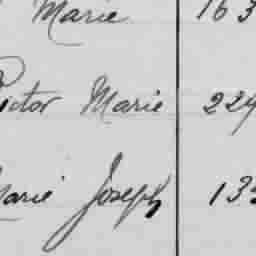 Marie 163
Victor Marie 229
Marie Joseph 133